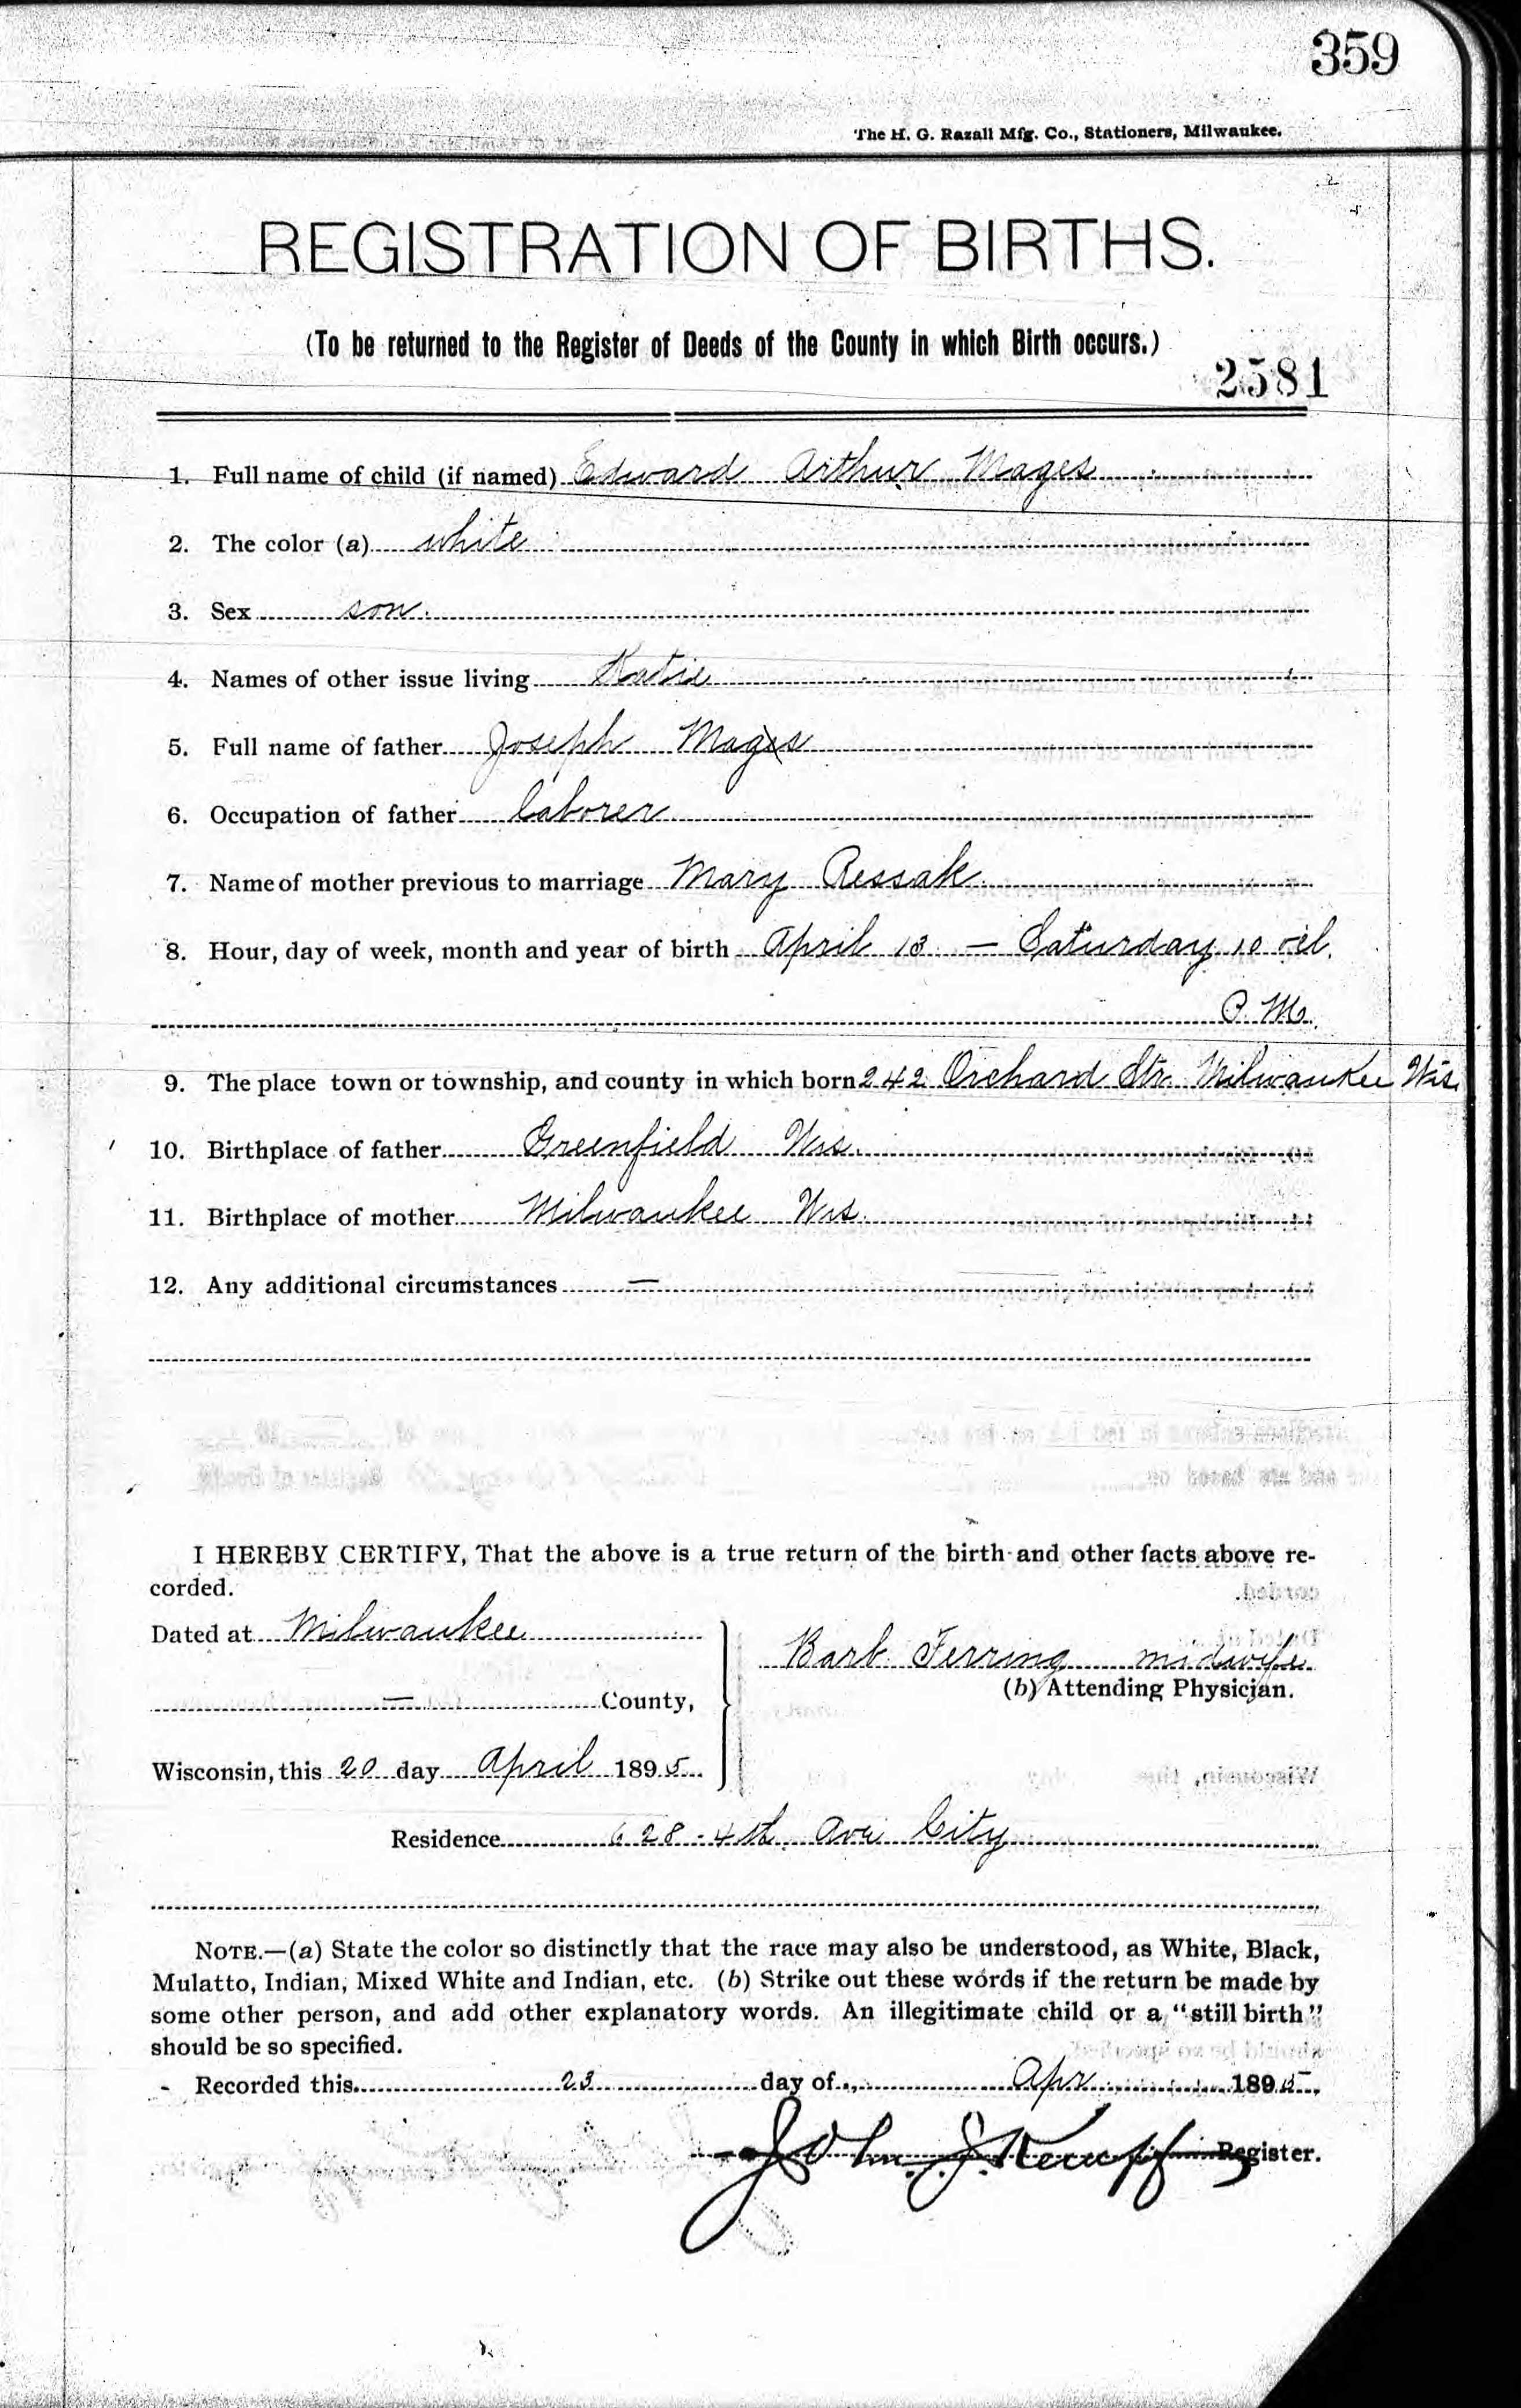 359
The H. G. Razall Mfg. Co., Stationers, Milwaukee.
REGISTRATION OF BIRTHS.
(To be returned to the Register of Deeds of the County in which Birth occurs.)
2581
1. Full name of child (if named) Edward Arthur Mages
2. The color (a) white
3. Sex son.
4. Names of other issue living Katie
5. Full name of father Joseph Mages
6. Occupation of father laborer
7. Name of mother previous to marriage Mary Ressak
8. Hour, day of week, month and year of birth April 13 — Saturday 10
P. M.
9. The place town or township, and county in which born 242 Orchard Str. Milwaukee Wis.
10. Birthplace of father Greenfield Wis.
11. Birthplace of mother Milwaukee Wis.
12. Any additional circumstances —
I HEREBY CERTIFY, That the above is a true return of the birth and other facts above re-
corded.
Dated at Milwaukee
Barb. Ferring midwife
(b) Attending Physician.
— County,
Wisconsin, this 20 day April 1895
Residence 628 - 4th Ave City
NOTE.—(a) State the color so distinctly that the race may also be understood, as White, Black,
Mulatto, Indian, Mixed White and Indian, etc. (b) Strike out these words if the return be made by
some other person, and add other explanatory words. An illegitimate child or a "still birth"
should be so specified.
Recorded this 23 day of Apr 1895,
John J. Register.